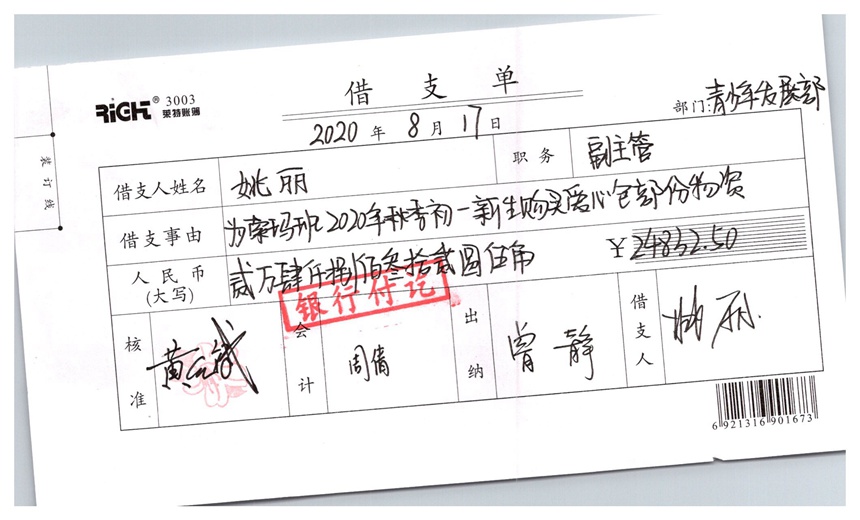 RiGHT® 3003
莱特账簿
借支单
2020年8月17日
部门:青少年发展部
装订线
借支人姓名 姚丽 职务 副主管
借支事由 为荣玛班2020年秋季初一新生购买爱心包部份物资
人民币(大写) 贰万肆仟捌佰叁拾贰圆伍角 ¥24832.50
银行付讫
核准 会计 周倩 出纳 曾静 借支人 姚丽
6 921316 901673